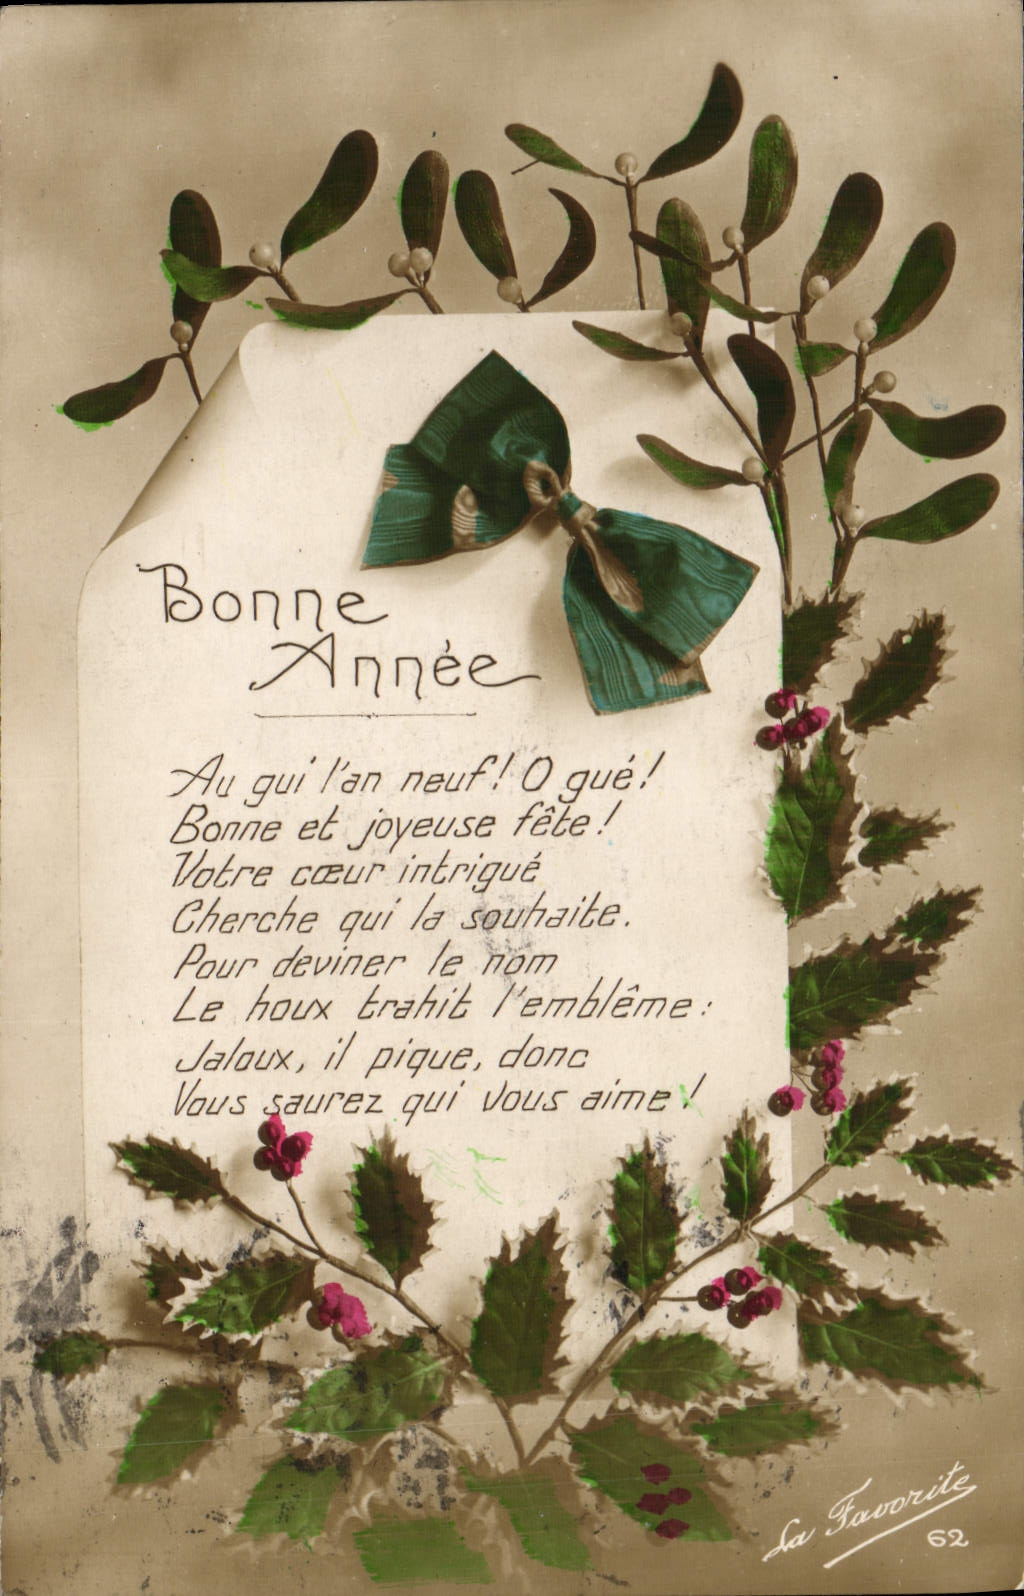 Bonne
Année
Au gui l'an neuf! O gué!
Bonne et joyeuse fête!
Votre cœur intrigué
Cherche qui la souhaite.
Pour deviner le nom
Le houx trahit l'emblême:
Jaloux, il pique, donc
Vous saurez qui vous aime!
La Favorite
62